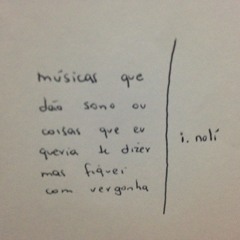 músicas que
dão sono ou
coisas que eu
queria te dizer
mas fiquei
com vergonha
i. nolí